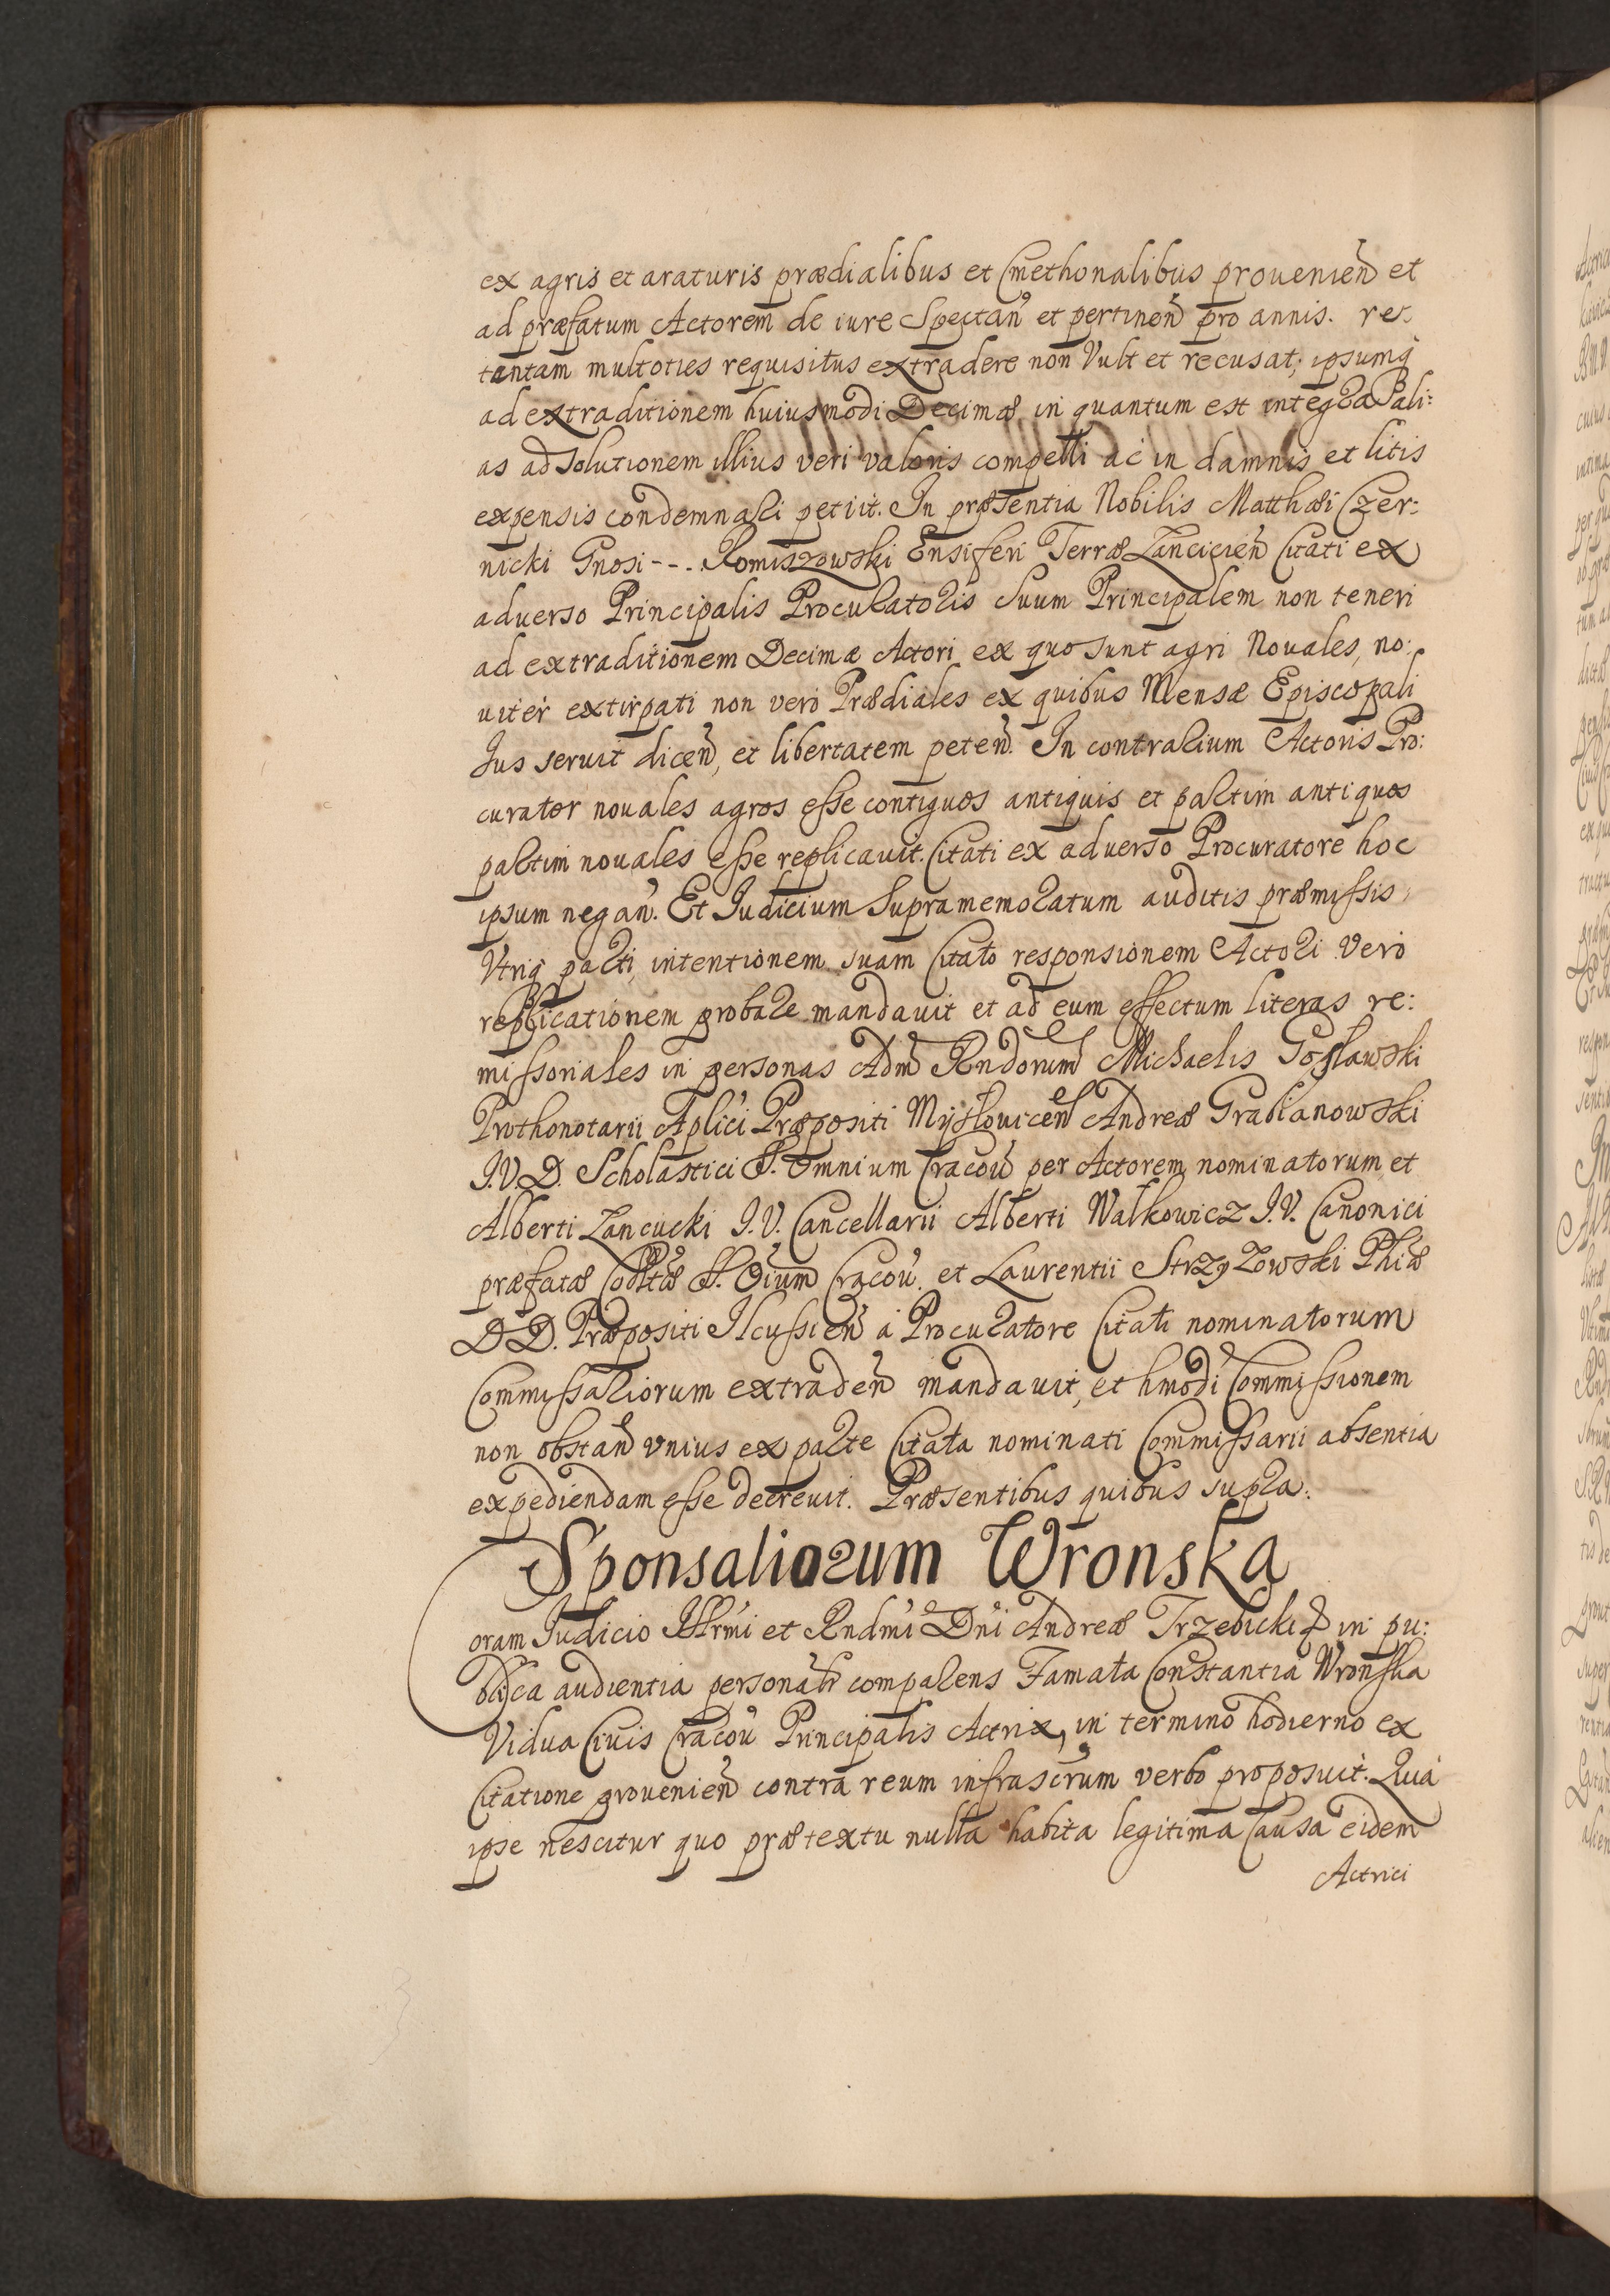 ex agris et araturis prædialibus et Cmethonalibus prouenień et
ad præfatum Actorem de iure Spectań et pertineń pro annis. re-
tantam multoties requisitus extradere non Vult et recusat; ipsumq́
ad extraditionem huiusmodi Decimæ in quantum est integra ali:
as ad solutionem illius veri valoris compelli ac in damnis et litis
expensis condemnari petiit. In præsentia Nobilis Matthæi Czer:
nicki Gnosi --- Romiszowski Ensiferi Terræ Lancicień Citati ex
aduerso Principalis Procuratoris Suum Principalem non teneri
ad extraditionem Decimæ Actori ex quo sunt agri Nouales, no:
uiter extirpati non vero Prædiales ex quibus Mensæ Episcopali
Jus seruit diceń, et libertatem peteń. In contrarium Actoris Pro:
curator nouales agros esse contiguos antiquis et partim antiquos
partim nouales esse replicauit. Citati ex aduerso Procuratore hoc
ipsum negań. Et Judicium Supramemoratum auditis præmissis
Vtriq́ parti, intentionem suam Citato responsionem Actori vero
replicationem probare mandauit et ad eum effectum literas re:
missoriales in personas Adm̃ Rndorum Michaelis Goslawski
Prothonotarii Aplici Præpositi Mysłouiceń Andreæ Grabianowski
J.V.D. Scholastici S. Omnium Cracoú per Actorem nominatorum et
Alberti Lancucki J.V. Cancellarii Alberti Walkowicz J.V. Canonici
præfatæ Colltæ S. Oium Cracoú. et Laurentii Strzyzowski Phiæ
D D. Præpositi Ilcussień a Procuratore Citati nominatorum
Commissariorum extradeń mandauit, et hmodi Commissionem
non obstań vnius ex parte Citata nominati Commissarii absentia
expediendam esse decreuit. Præsentibus quibus supra.
Sponsaliorum Wronska
Coram Judicio Illrmi et Rndmi Dni Andreæ Trzebicki in pu:
blica audientia personalr comparens Famata Constantia Wronska
Vidua Ciuis Cracoú Principalis Actrix, in termino hodierno ex
Citatione prouenień contra reum infrascrum verbo proposuit. Quia
ipse nescitur quo prætextu nulla habita legitima Causa eidem
Actrici